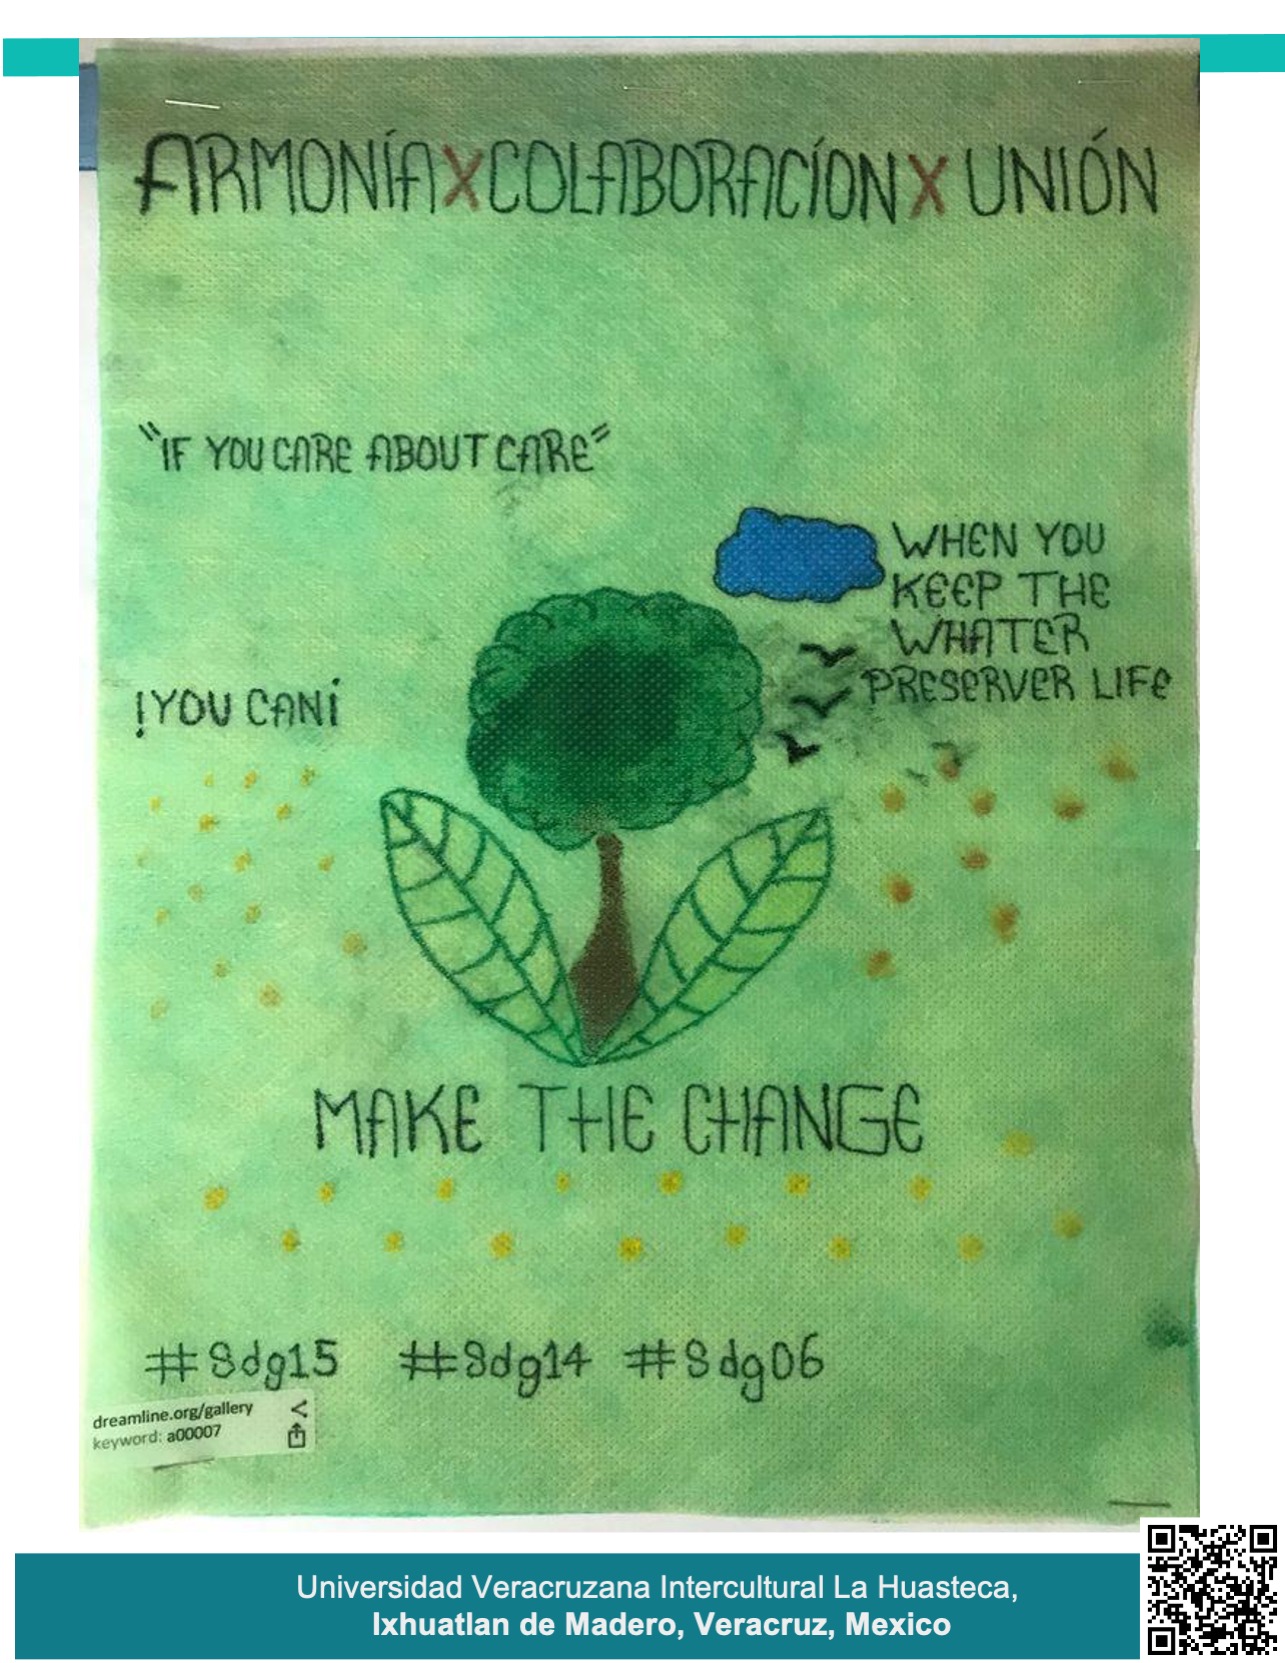 ARMONÍA X COLABORACÍON X UNIÓN
"IF YOU CARE ABOUT CARE"
WHEN YOU
KEEP THE
WHATER
PRESERVER LIFE
!YOU CAN¡
MAKE THE CHANGE
#Sdg15 #Sdg14 #Sdg06
dreamline.org/gallery
keyword: a00007
Universidad Veracruzana Intercultural La Huasteca,
Ixhuatlan de Madero, Veracruz, Mexico